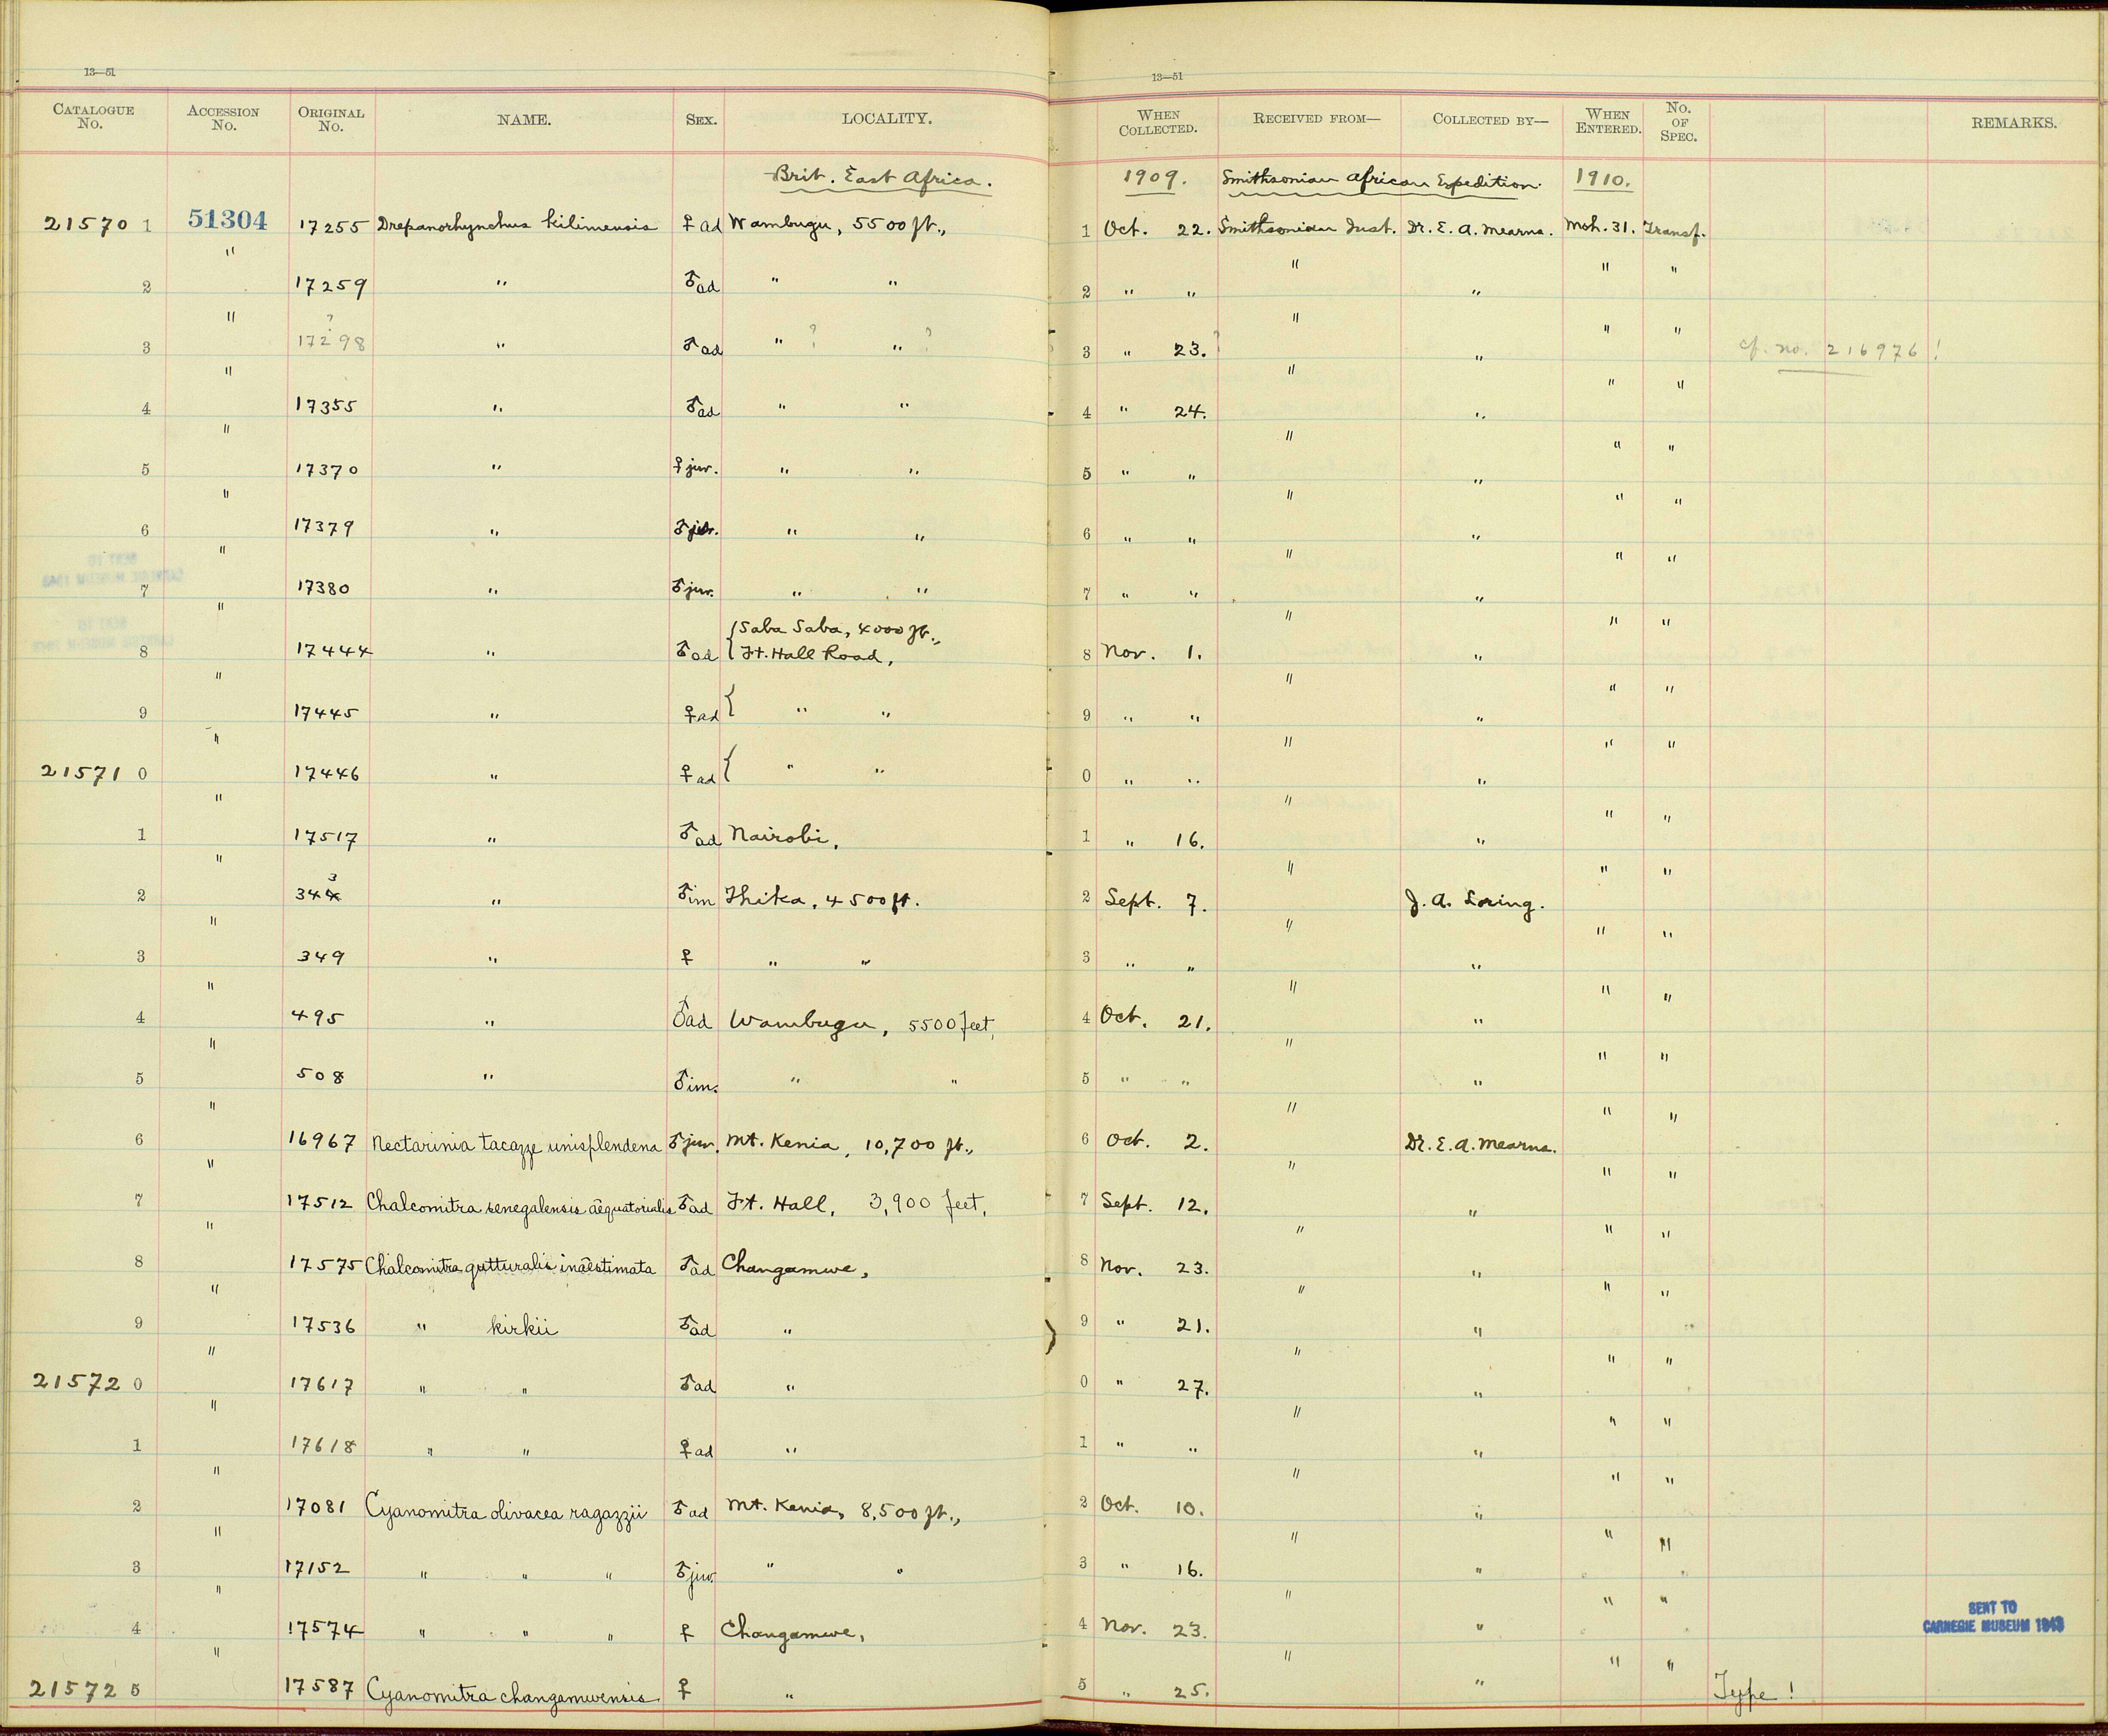 13—51 13—51
CATALOGUE No. ACCESSION No. ORIGINAL No. NAME. SEX. LOCALITY. WHEN COLLECTED. RECEIVED FROM— COLLECTED BY— WHEN ENTERED. No. OF SPEC. REMARKS.
Brit. East Africa. 1909. Smithsonian African Expedition. 1910.
21570 1 51304 17255 Drepanorhynchus kilimensis ♀ ad Wambugu, 5500 ft., 1 Oct. 22. Smithsonian Inst. Dr. E. A. Mearns. Mch. 31. Transf.
2 " 17259 " ♂ ad " " 2 " " " " " "
3 " 17298 ? " ♂ ad " ? " ? 3 " 23. ? " " " " cf. no. 216976 !
4 " 17355 " ♂ ad " " 4 " 24. " " " "
5 " 17370 " ♀ juv. " " 5 " " " " " "
6 " 17379 " ♂ juv. " " 6 " " " " " "
7 " 17380 " ♂ juv. " " 7 " " " " " "
8 " 17444 " ♂ ad { Saba Saba, 4000 ft., Ft. Hall Road, 8 Nov. 1. " " " "
9 " 17445 " ♀ ad { " " 9 " " " " " "
21571 0 " 17446 " ♀ ad { " " 0 " " " " " "
1 " 17517 " ♂ ad Nairobi, 1 " 16. " " " "
2 " 344 3 " ♂ im Thika, 4500 ft. 2 Sept. 7. " J. A. Loring. " "
3 " 349 " ♀ " " 3 " " " " " "
4 " 495 " ♂ ad Wambugu, 5500 feet, 4 Oct. 21. " " " "
5 " 508 " ♂ im. " " 5 " " " " " "
6 " 16967 Nectarinia tacazze unisplendens ♂ juv. Mt. Kenia, 10,700 ft., 6 Oct. 2. " Dr. E. A. Mearns. " "
7 " 17512 Chalcomitra senegalensis aequatorialis ♂ ad Ft. Hall, 3,900 feet, 7 Sept. 12. " " " "
8 " 17575 Chalcomitra gutturalis inaestimata ♂ ad Changamwe, 8 Nov. 23. " " " "
9 " 17536 " kirkii ♂ ad " 9 " 21. " " " "
21572 0 " 17617 " " ♂ ad " 0 " 27. " " " "
1 " 17618 " " ♀ ad " 1 " " " " " "
2 " 17081 Cyanomitra olivacea ragazzii ♂ ad Mt. Kenia, 8,500 ft., 2 Oct. 10. " " " "
3 " 17152 " " " ♂ juv. " " 3 " 16. " " " "
4 " 17574 " " " ♀ Changamwe, 4 Nov. 23. " " " " SENT TO CARNEGIE MUSEUM 1943
21572 5 " 17587 Cyanomitra changamwensis ♀ " 5 " 25. " " " " Type !